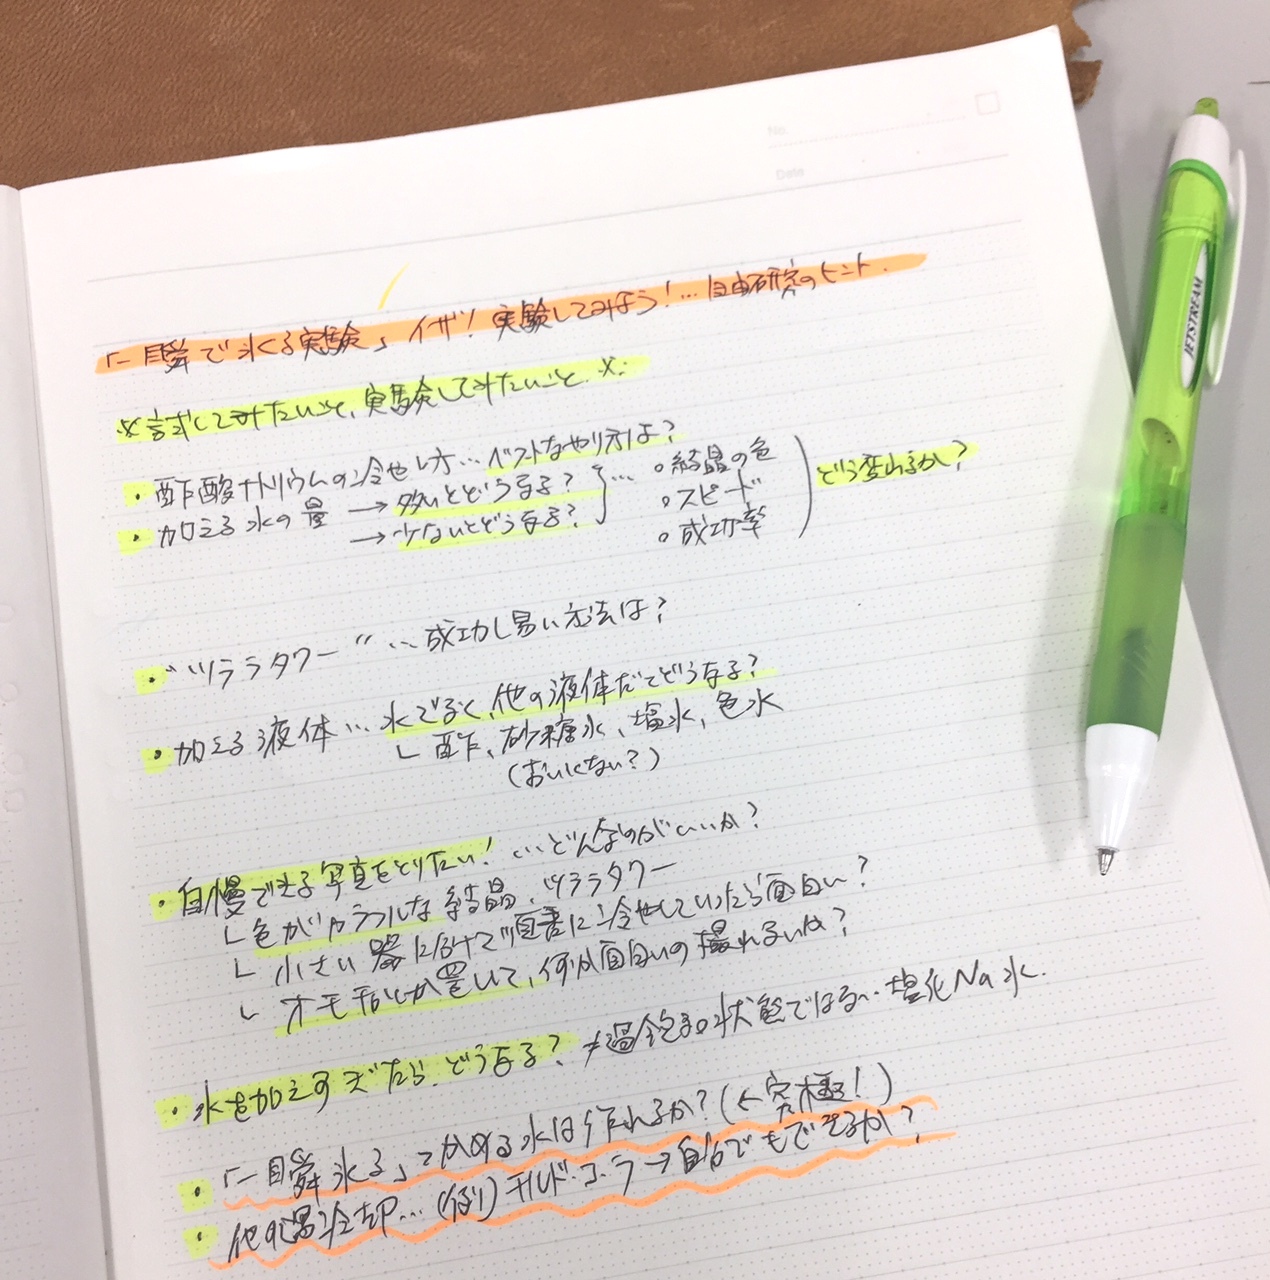 No.
Date
「一瞬で氷る実験」イザ！実験してみよう！…自由研究のヒント.
※試してみたいこと、実験してみたいこと.※
・酢酸ナトリウムの冷やし方…ベストなやり方は？
・加える水の量 →多いとどうなる？ … 。結晶の色
→少ないとどうなる？ 。スピード
。成功率
どう変わるか？
・"ツララタワー"…成功し易い方法は？
・加える液体…水でなく、他の液体だとどうなる？
└酢、砂糖水、塩水、色水
(おいしくない？)
・自慢できる写真をとりたい！…どんなのがいいか？
└色がカラフルな結晶、ツララタワー
└小さい器に分けて順番に冷やしていったら面白い？
└オモチャとか置いて、何か面白いの撮れるいか？
・水を加えすぎたら、どうなる？≠過飽和状態ではない…塩化Na水.
・「一瞬氷る」つかめる水は作れるか？(←究極！)
・他の過冷却…(例)コールド・コーラ→自分でもできるか？
JETSTREAM